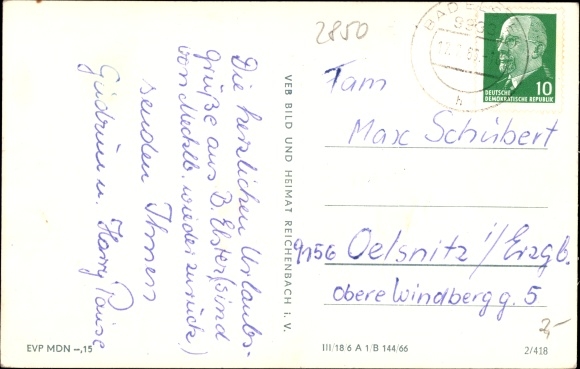 Die herzlichen Urlaubs-
grüße aus B. Elster (sind
von Mecklb. wieder zurück.)
senden Ihnen
Gudrun u. Harry Pause
EVP MDN –,15
VEB BILD UND HEIMAT REICHENBACH i. V.
2850
BAD ELSTER
DEUTSCHE
DEMOKRATISCHE REPUBLIK
10
h
Fam
Max Schubert
9156 Oelsnitz i/Erzgb.
Obere Windberg g. 5
2,-
III/18 6 A 1/B 144/66
2/418